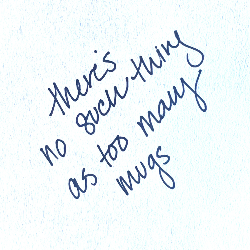 there's
no such thing
as too many
mugs